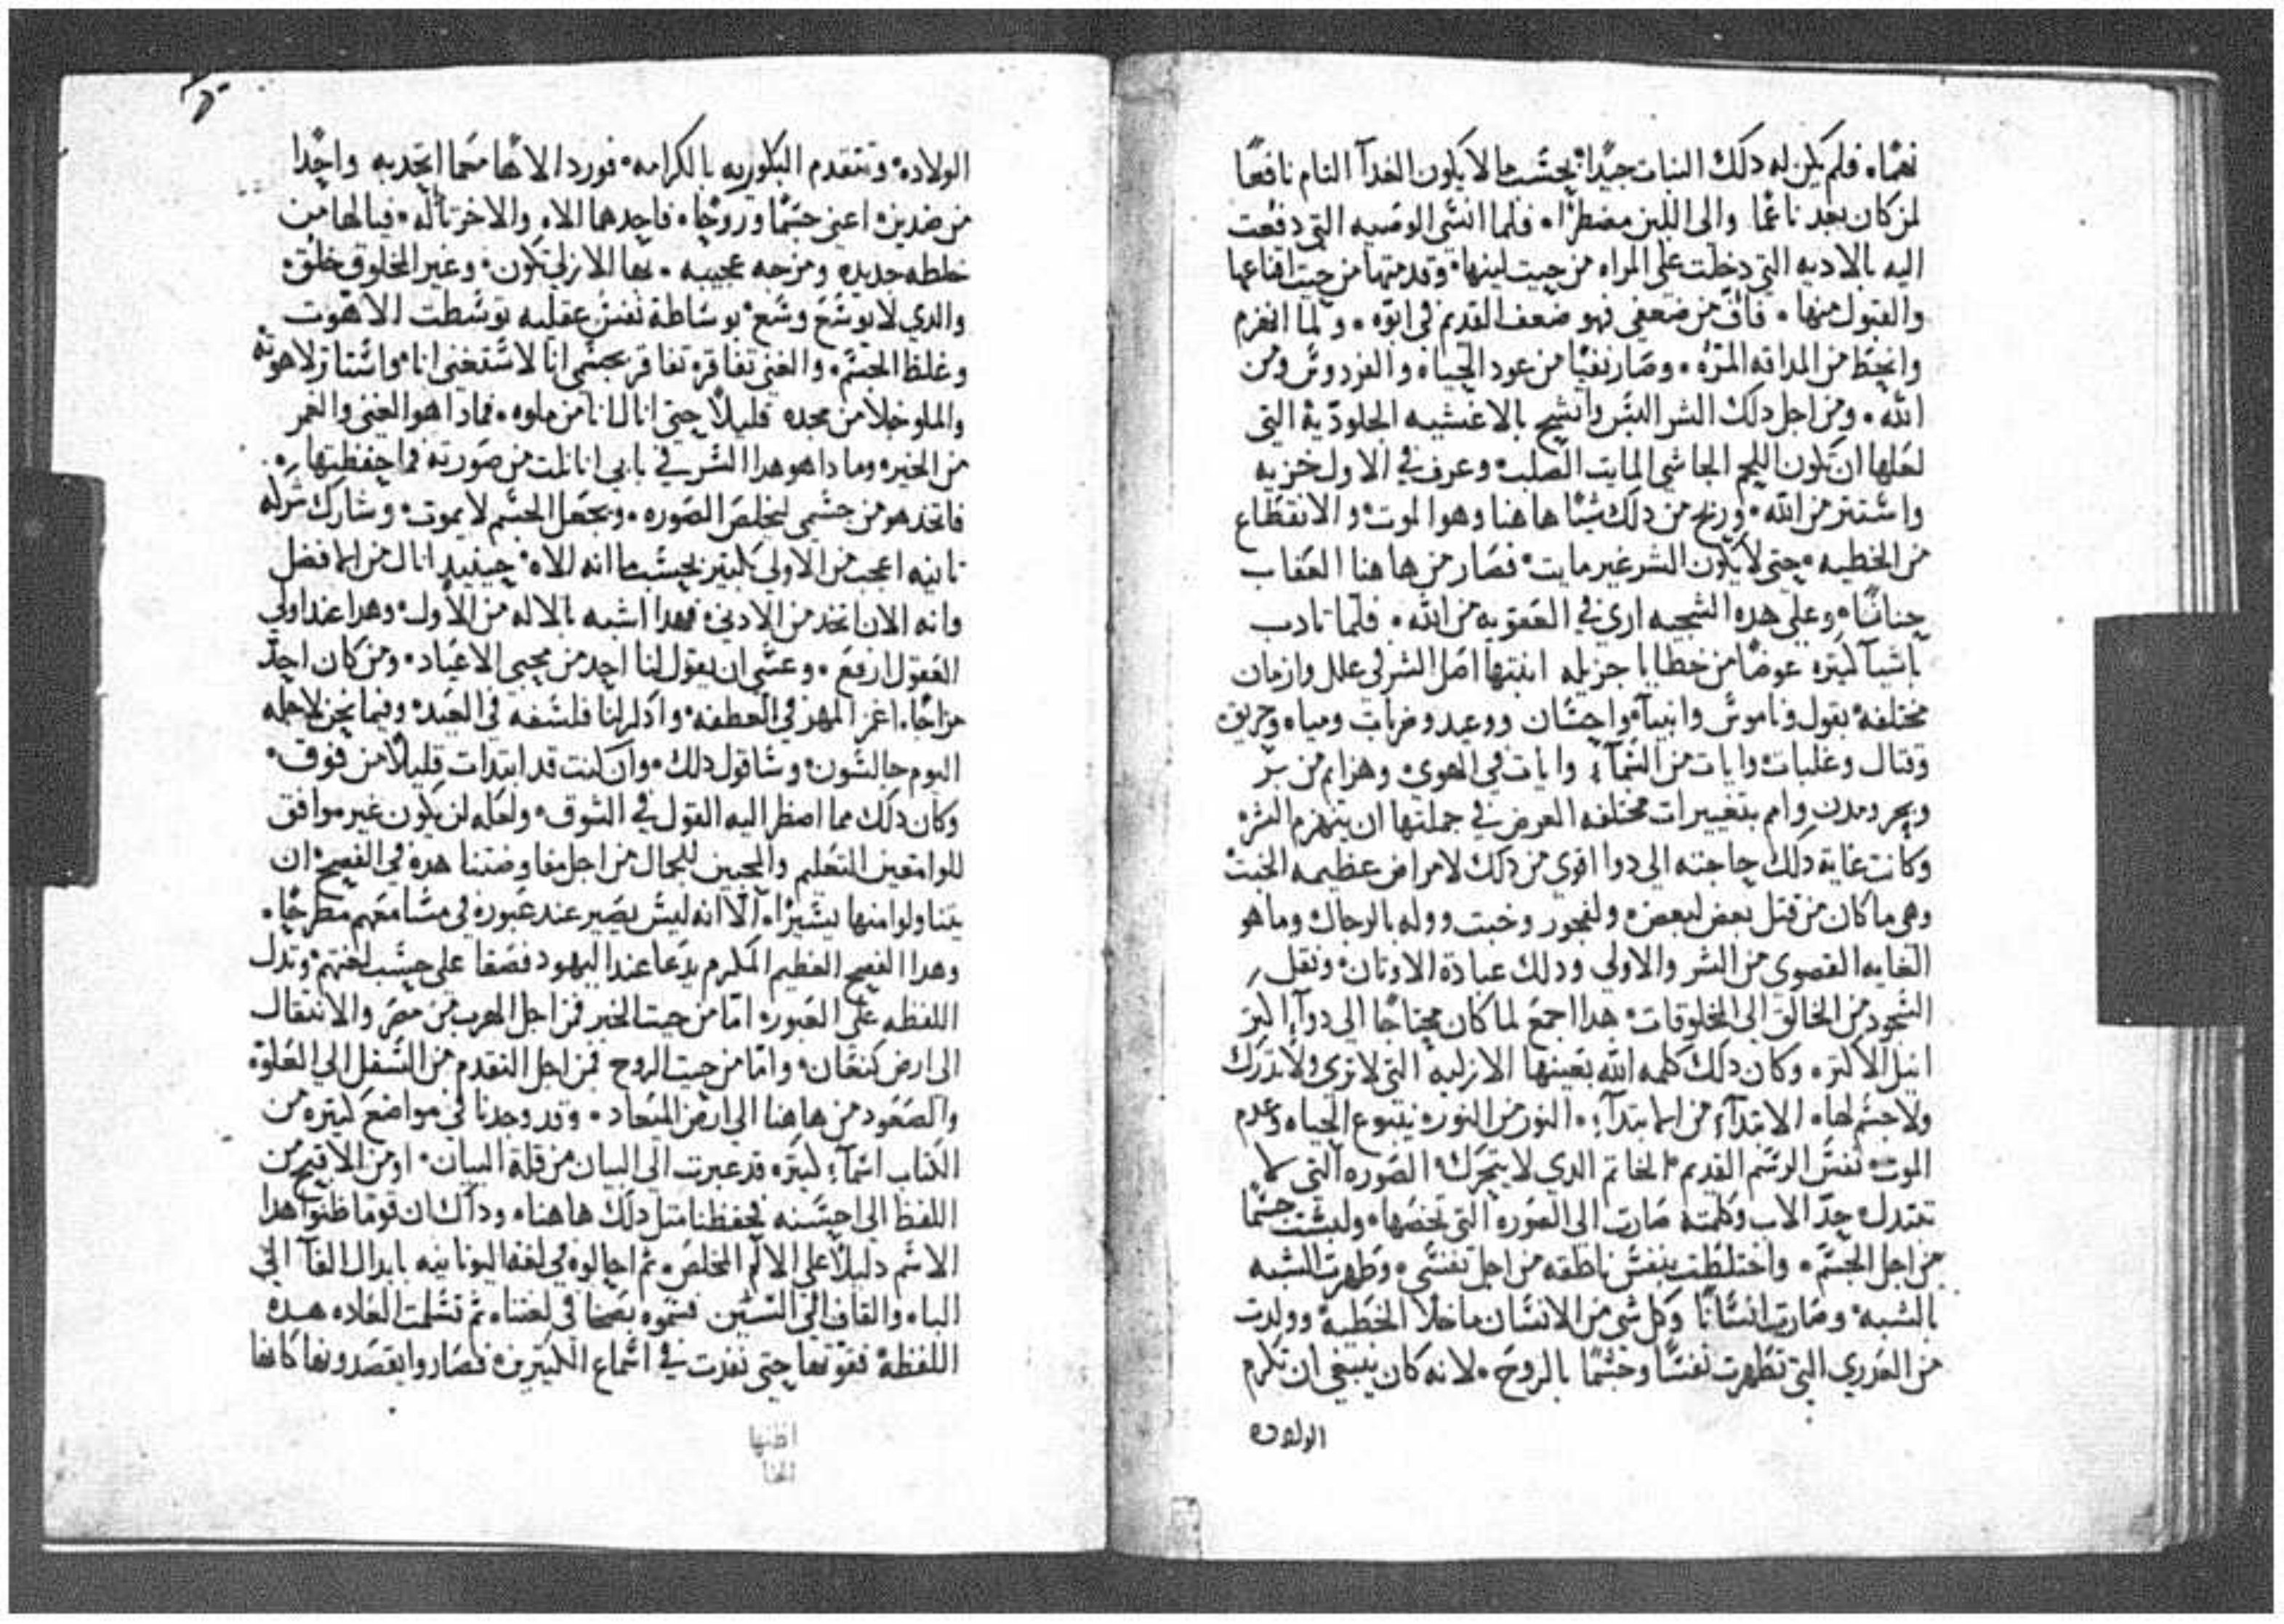 نهمًا، فلم يكن له دلك النبات جيدًا، بحسب ما لا يكون الغدآ التام نافعًا
لمن كان بعد ناعمًا والى اللبن مضطرًا، فلما انسَى الوصيه التي دفعت
اليه بالاديه التي دخلت على المراه من حيت لينها، وقدمتها من حيت اقناعها
والقبول منها، فاف من ضعفي فهو ضعف القديم في ابوه، ولما انهزم
وانحط من المداقه المرّه، وصار نفيًا من عود الحياه والفردوس ومن
الله، ومن اجل دلك الشر التبس واتشح بالاغشيه الجلوديّة التي
لعلها ان تكون اللحم الجاسي المايت الصلب، وعرف في الاول خزيه
واستتر من الله، وربح من دلك شيًا هاهنا وهو الموت، والانقطاع
من الخطيه، حتى لا يكون الشر غير مايت، فصار من هاهنا العقاب
حنانًا، وعلى هده السجيه ارى في العقوبه من الله، فلما تادب
باشيآ كتيره عوضًا من خطايا جزيله انبتها اصل الشر في علل وازمان
مختلفه، بقول وناموس وانبيآ، واحسان ووعيد وضربات ومياه وحريق
وقتال وغلبات، وايات من السمآء، وايات في الهوى، وهزايم من بر
وبحر ومدن وامم بتغييرات مختلفه الغرض في جملتها ان ينهزم الشر،
وكانت غاية دلك حاجته الى دوا اقوى من دلك لامراض عظيمه الخبت
وهي ما كان من قتل بعض لبعض، ولفجور وخبت ووله بالرجال، وما هو
الغايه القصوى من الشر والاولى ودلك عبادة الاوتان، ونقل
السجود من الخالق الى المخلوقات، هدا اجمع لما كان محتاجًا الى دوآء اكبر
انيل الاكتر، وكان دلك كلمه الله بعينها الازليه التي لا ترى ولا تدرك
ولا جسم لها، الابتدآء من الابتدآء، النور من النور، ينبوع الحياه وعدم
الموت، نفس الرسم القديم، الخاتم الدي لا يتحرك، الصوره التي لا
تعتدل، حدّ الاب وكلمته صارت الى الصوره التي تخصها، ولبست جسمًا
من اجل الجسم، واختلطت بنفس ناطقه من اجل نفسي، وطهرت الشبه
بالشبه، وصارت انسانًا وكل شي من الانسان ما خلا الخطيه، وولدت
من العدرى التي تطهرت نفسًا وجسمًا بالروح، لانه كان ينبغي ان تكرم
الولاده
الولاده، وتتقدم البكوريه بالكرامه، فورد الالاه مع ما اتحد به واحدًا
من ضدين، اعني جسمًا وروحًا، فاحدهما الاه والاخر تأله، فيا لها من
خلطه جديده ومزجه عجيبه، بها الازلي تكون، وغير المخلوق خلق،
والدي لا يوسَع وسع، بوساطة نفس عقليه توسطت اللاهوت
وغلظ الجسم، والغني تفاقر، تفاقر بجسمي انا لاستغنى انا، واستتار لاهوته
والملو خلا من مجده قليلاً حتى انال انا من ملوه، فماذا هو الغنى والغمر
من الخير، وما دا هو هدا السر في بابي، انا نلت من صورته فما حفظتها،
فاتخد هو من جسمي ليخلص الصوره، ويجعل الجسم لا يموت، وشارك شركه
تانيه اعجب من الاولى بكتير بحسب ما انه الاه، حينيد انال من الافضل
وانه الان اتخد من الادنى، فهدا اشبه بالاله من الاول، وهدا عند اولي
العقول ارفع، وعسى ان يقول لنا احد من محبي الاعياد، ومن كان احدّ
مزاجًا، اغمز المهر في العطفه، وادكر لنا فلسفه في العيد، وفيما نحن لاجله
اليوم جالسون، وساقول دلك، وان كنت قد ابتدات قليلاً من فوق،
وكان دلك مما اضطر اليه القول في الشوق، ولعله لن يكون غير موافق
للوامقين التعليم والمحبين للجمال من اجل مفاوضتنا هده في الفصح، ان
يتناولوا منها يسيرًا، الا انه ليس يصير عند عبوره في مسامعهم مطرحًا،
وهدا الفصح العظيم المكرم يدعا عند اليهود فصقا على حسب لغتهم، وتدل
اللفظه على العبور، امّا من حيت الخبر فمن اجل الهرب من مصر والانتقال
الى ارض كنعان، وامّا من حيت الروح فمن اجل التقدم من السفل الى العلوّ،
والصعود من هاهنا الى ارض الميعاد، وقد وجدنا في مواضع كتيره من
الكتاب اسمآء كتيره قد عبرت الى البيان من قلة البيان، او من الاقبح من
اللفظ الى احسنه، فحفظنا متل دلك هاهنا، وداك ان قومًا ظنوا هدا
الاسم دليلاً على الالم المخلص، تم احالوه في لغه اليونانيه بابدال الفآ الى
الباء، والقاف الى السين فسموه بصخا في لغتنا، تم تسلمت العاده هده
اللفظه فقوتها حتى نفدت في اسماع الكتيرين، فصاروا يقصدونها كانها